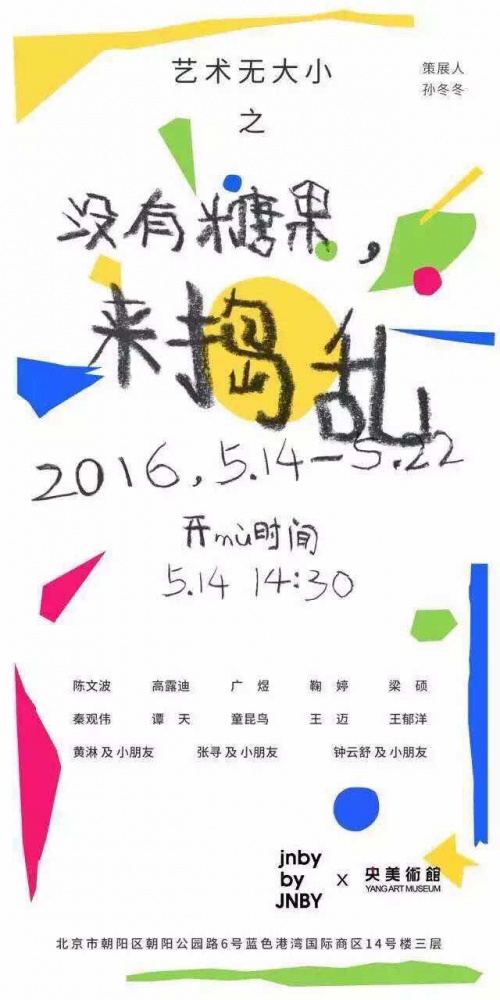 艺术无大小
策展人
孙冬冬
之
没有糖果,
来捣乱
2016,5.14-5.22
开mù时间
5.14 14:30
陈文波 高露迪 广煜 鞠婷 梁硕
秦观伟 谭天 童昆鸟 王迈 王郁洋
黄淋及小朋友 张寻及小朋友 钟云舒及小朋友
jnby
by
JNBY
x
央美術館
YANG ART MUSEUM
北京市朝阳区朝阳公园路6号蓝色港湾国际商区14号楼三层